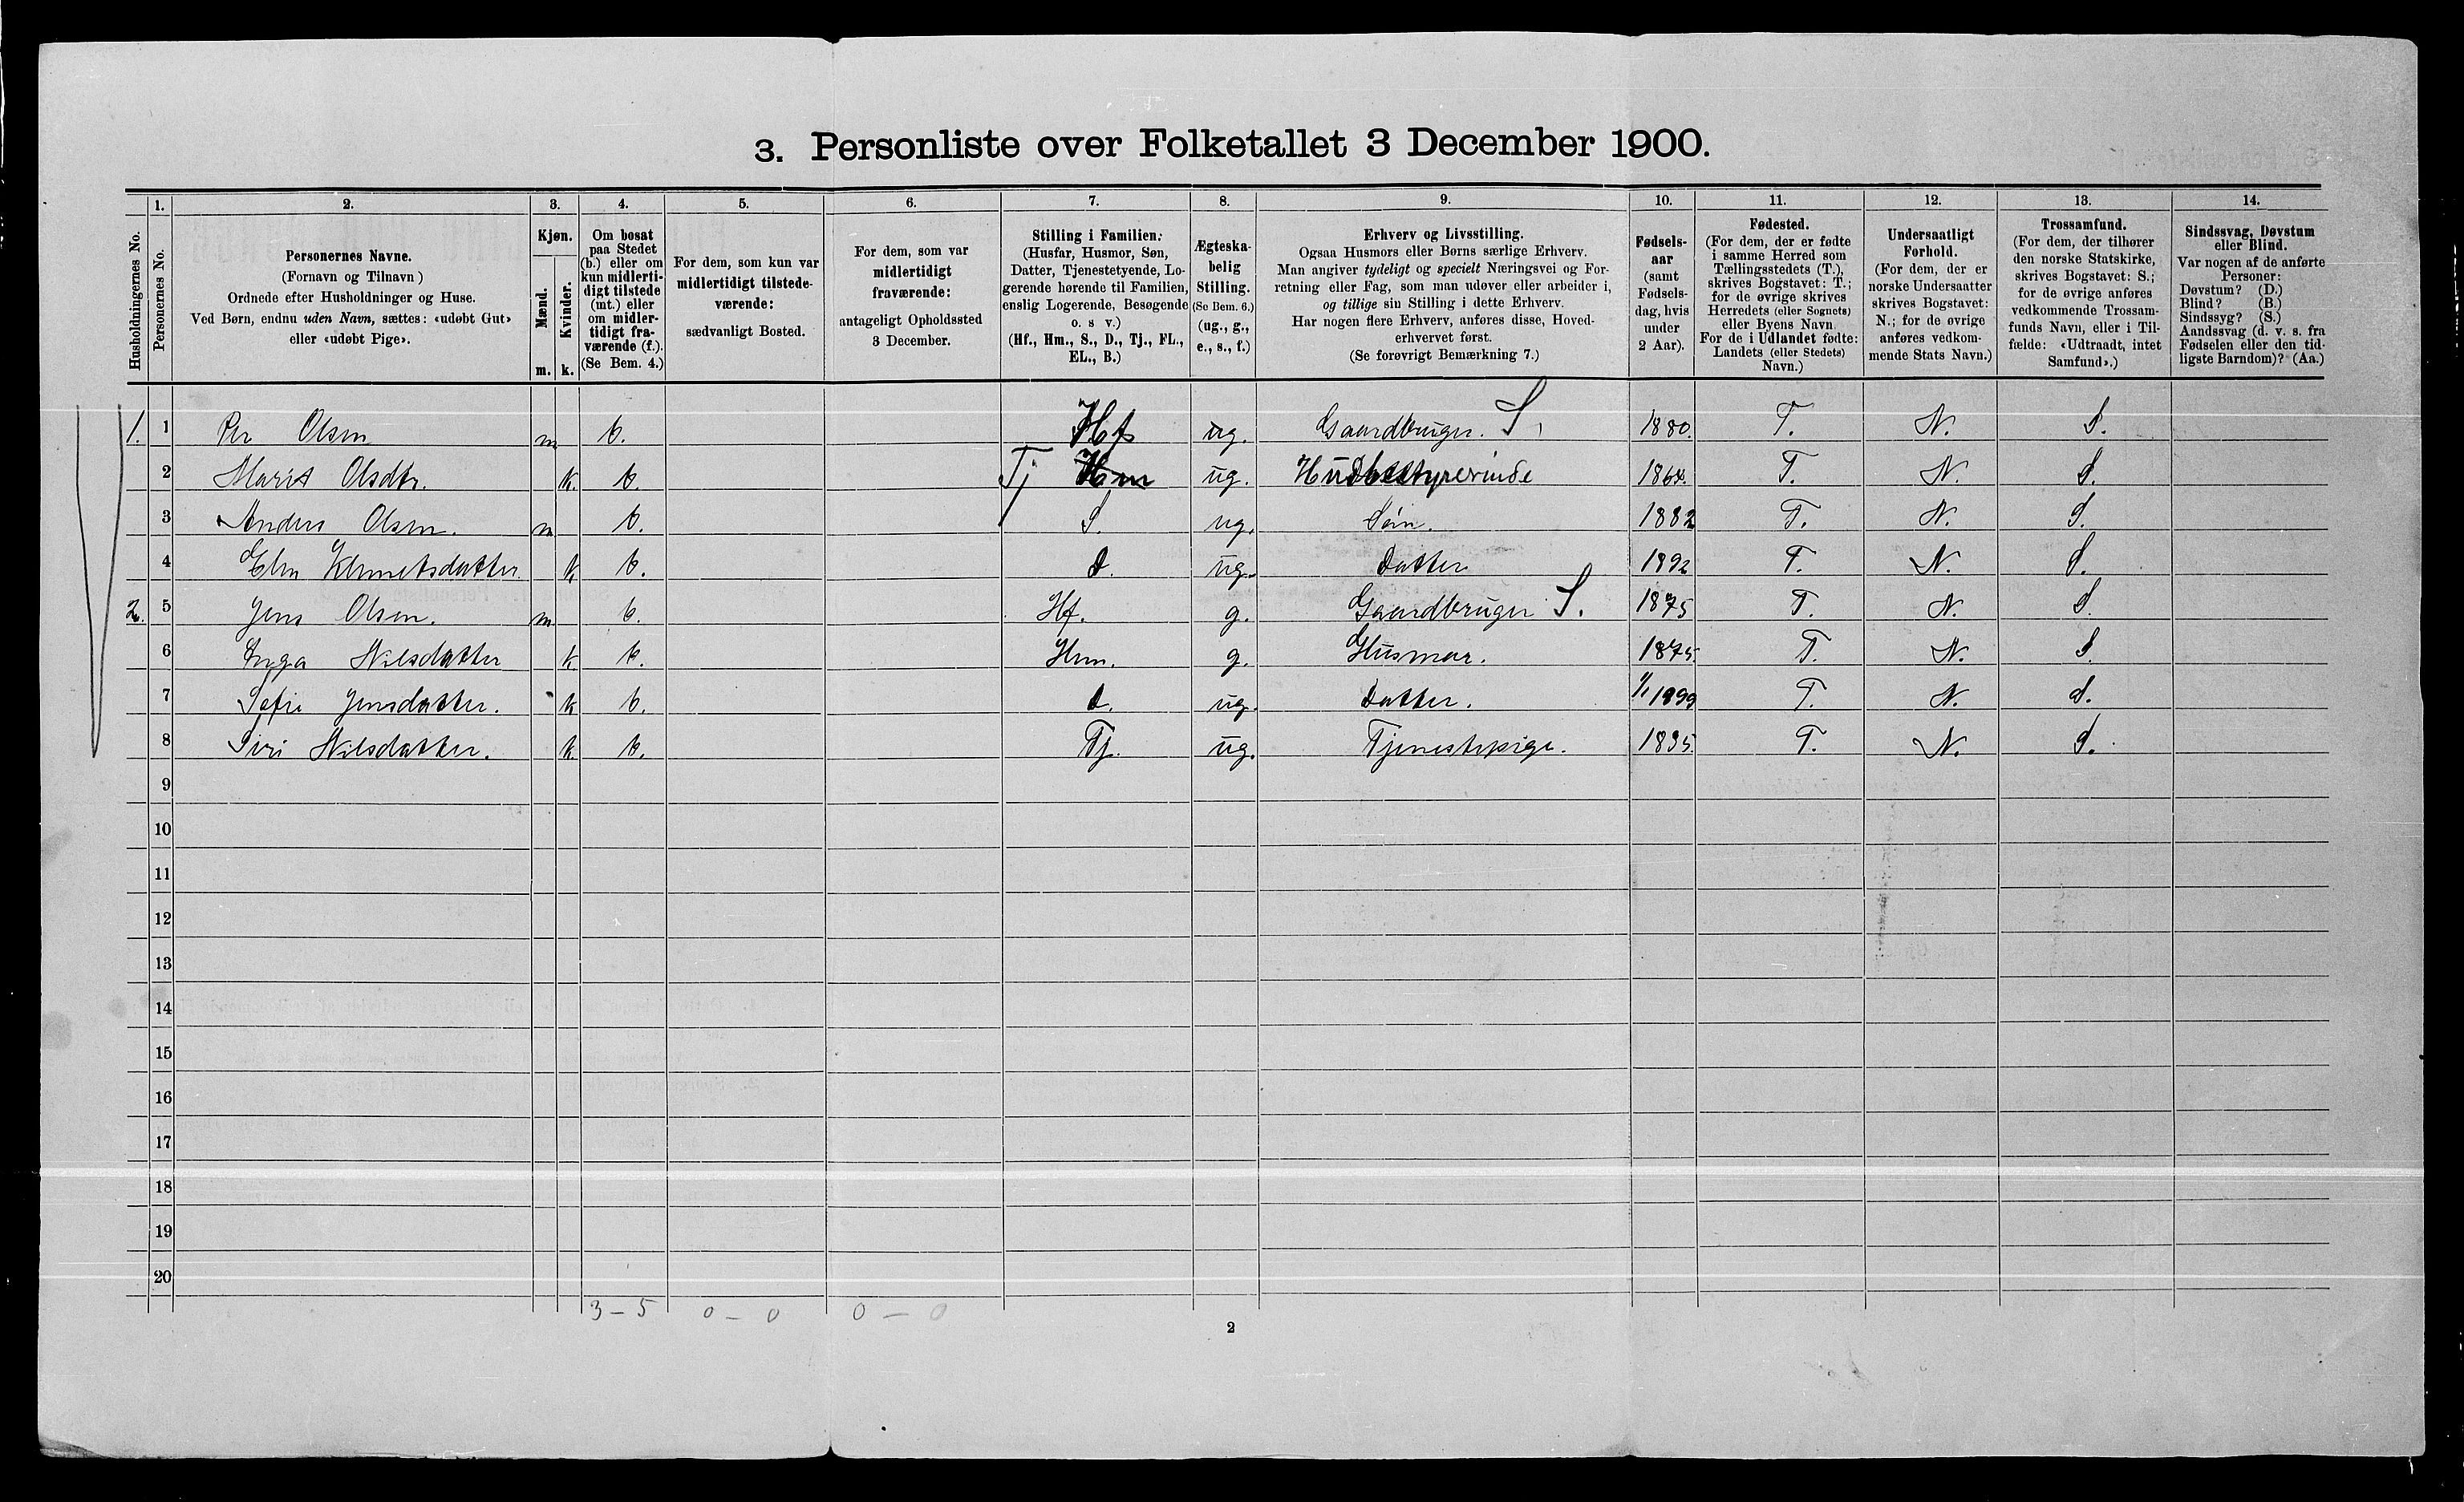 3. Personliste over Folketallet 3 December 1900.
1. 2. 3. 4. 5. 6. 7. 8. 9. 10. 11. 12. 13. 14.
Husholdningernes No.
Personernes No.
Personernes Navne.
(Fornavn og Tilnavn)
Ordnede efter Husholdninger og Huse.
Ved Børn, endnu uden Navn, sættes: «udøbt Gut»
eller «udøbt Pige».
Kjøn.
Mænd.
Kvinder.
m. k.
Om bosat
paa Stedet
(b.) eller om
kun midlerti-
digt tilstede
(mt.) eller
om midler-
tidigt fra-
værende (f.).
(Se Bem. 4.)
For dem, som kun var
midlertidigt tilstede-
værende:
sædvanligt Bosted.
For dem, som var
midlertidigt
fraværende:
antageligt Opholdssted
3 December.
Stilling i Familien:
(Husfar, Husmor, Søn,
Datter, Tjenestetyende, Lo-
gerende hørende til Familien,
enslig Logerende, Besøgende
o. s v.)
(Hf., Hm., S., D., Tj., FL.,
EL., B.)
Ægteska-
belig
Stilling.
(Se Bem. 6.)
(ug., g.,
e., s., f.)
Erhverv og Livsstilling.
Ogsaa Husmors eller Børns særlige Erhverv.
Man angiver tydeligt og specielt Næringsvei og For-
retning eller Fag, som man udøver eller arbeider i,
og tillige sin Stilling i dette Erhverv.
Har nogen flere Erhverv, anføres disse, Hoved-
erhvervet først.
(Se forøvrigt Bemærkning 7.)
Fødsels-
aar
(samt
Fødsels-
dag, hvis
under
2 Aar).
Fødested.
(For dem, der er fødte
i samme Herred som
Tællingsstedets (T.),
skrives Bogstavet: T.;
for de øvrige skrives
Herredets (eller Sognets)
eller Byens Navn.
For de i Udlandet fødte:
Landets (eller Stedets)
Navn.)
Undersaatligt
Forhold.
(For dem, der er
norske Undersaatter
skrives Bogstavet:
N.; for de øvrige
anføres vedkom-
mende Stats Navn.)
Trossamfund.
(For dem, der tilhører
den norske Statskirke,
skrives Bogstavet: S.;
for de øvrige anføres
vedkommende Trossam-
funds Navn, eller i Til-
fælde: «Udtraadt, intet
Samfund».)
Sindssvag, Døvstum
eller Blind.
Var nogen af de anførte
Personer:
Døvstum? (D.)
Blind? (B.)
Sindssyg? (S.)
Aandssvag (d. v. s. fra
Fødselen eller den tid-
ligste Barndom)? (Aa.)
1. 1 Per Olsen m b. Hf ug. Gaardbruger. S. 1880. T. N. S.
2 Marit Olsdtr. k. b. Tj Hm ug. T. N. S.
3 Anders Olsen. m b. S. ug. Søn. 1882 T. N. S.
4 Elen Klemetsdatter k b. d. ug. Datter 1892 T. N. S.
2. 5 Jens Olsen. m b. Hf. g. Gaardbruger S. 1875 T. N. S.
6 Inga Nilsdatter k b. Hm. g. Husmor. 1875. T. N. S.
7 Sofie Jensdatter. k b. d. ug. Datter. 1899 T. N. S.
8 Siri Nilsdatter. k. b. Tj. ug. Tjenestepige. T. N. S.
9
10
11
12
13
14
15
16
17
18
19
20
3 – 5 0 – 0 0 – 0
2